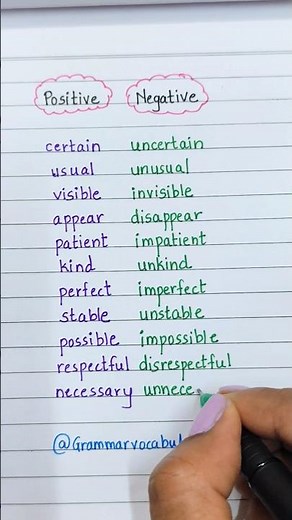 Positive Negative
certain uncertain
usual unusual
visible invisible
appear disappear
patient impatient
kind unkind
perfect imperfect
stable unstable
possible impossible
respectful disrespectful
necessary unnece
@Grammarvocabul